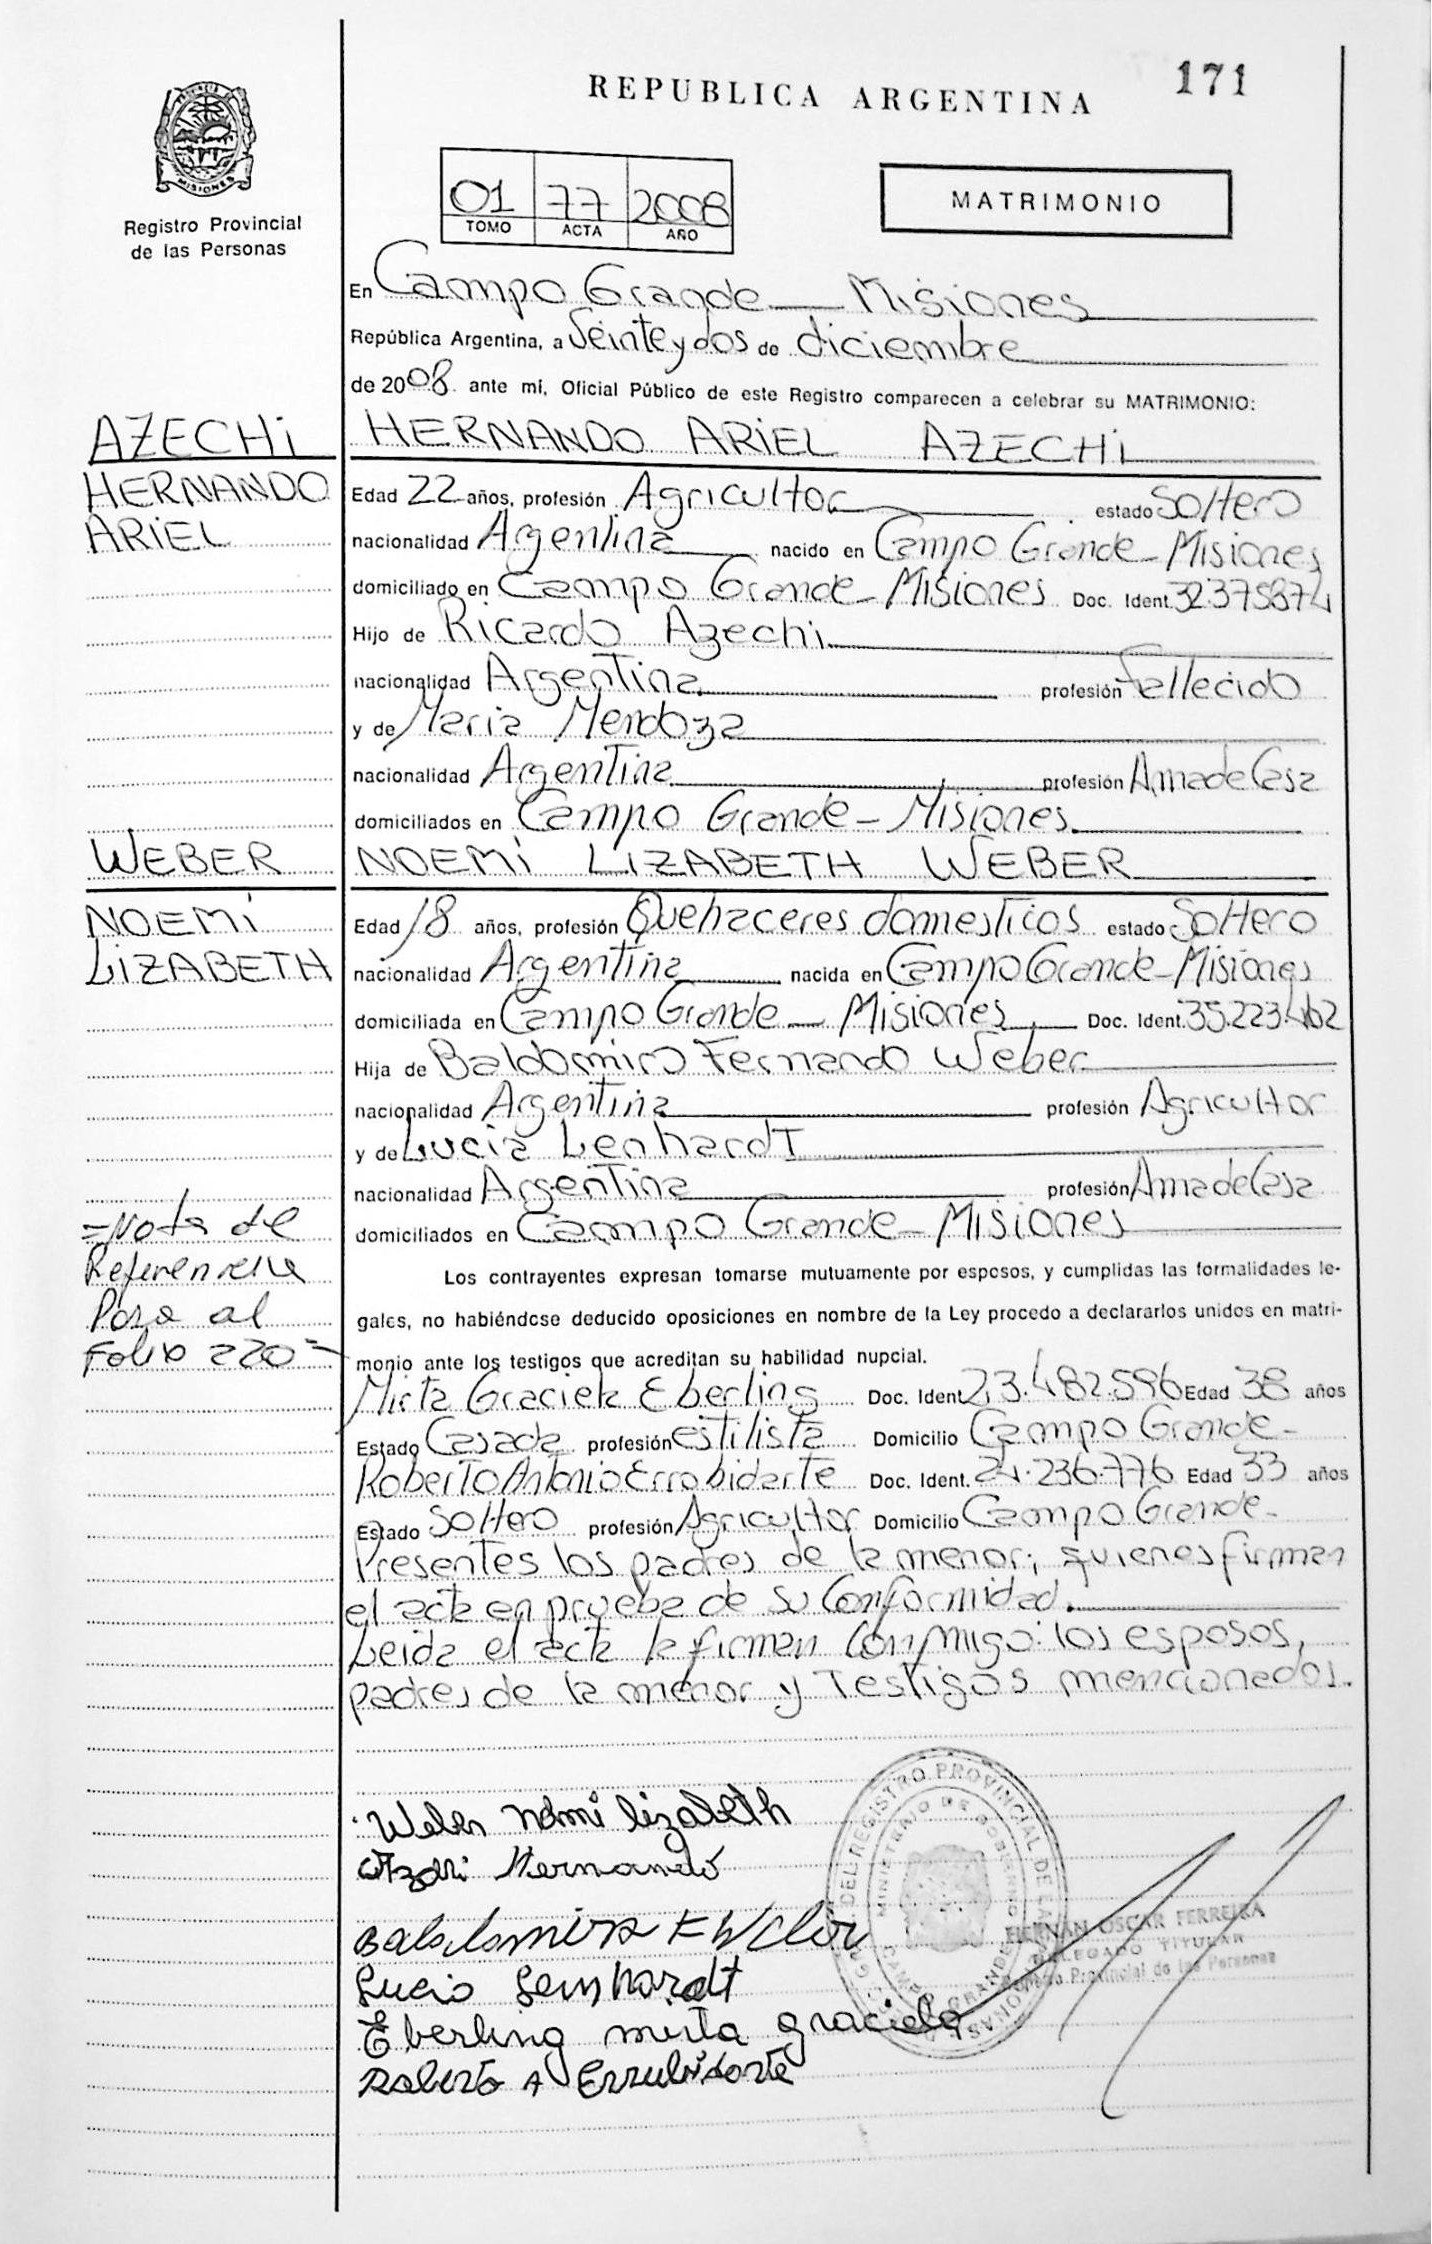 171
REPUBLICA ARGENTINA
MISIONES
Registro Provincial
de las Personas
01 77 2008
TOMO ACTA AÑO
MATRIMONIO
En Campo Grande Misiones
República Argentina, a Veinte y dos de diciembre
de 2008 ante mí, Oficial Público de este Registro comparecen a celebrar su MATRIMONIO:
AZECHI
HERNANDO
ARIEL
HERNANDO ARIEL AZECHI
Edad 22 años, profesión Agricultor estado Soltero
nacionalidad Argentina nacido en Campo Grande - Misiones
domiciliado en Campo Grande - Misiones Doc. Ident. 32.375874
Hijo de Ricardo Azechi
nacionalidad Argentina profesión fallecido
y de Maria Mendoza
nacionalidad Argentina profesión Ama de Casa
domiciliados en Campo Grande - Misiones
WEBER
NOEMI
LIZABETH
NOEMI LIZABETH WEBER
Edad 18 años, profesión Quehaceres domesticos estado Soltero
nacionalidad Argentina nacida en Campo Grande - Misiones
domiciliada en Campo Grande - Misiones Doc. Ident. 35.223.462
Hija de Baldomiro Fernando Weber
nacionalidad Argentina profesión Agricultor
y de Lucia Lenhardt
nacionalidad Argentina profesión Ama de Casa
domiciliados en Campo Grande - Misiones
Los contrayentes expresan tomarse mutuamente por esposos, y cumplidas las formalidades le-
gales, no habiéndose deducido oposiciones en nombre de la Ley procedo a declararlos unidos en matri-
monio ante los testigos que acreditan su habilidad nupcial.
=Nota de
Referencia
Pasa al
Folio 220=
Mirta Graciela Eberling Doc. Ident. 23.482.596 Edad 38 años
Estado Casada profesión estilista Domicilio Campo Grande -
Roberto Antonio Errobidarte Doc. Ident. 24.236.776 Edad 33 años
Estado Soltero profesión Agricultor Domicilio Campo Grande -
Presentes los padres de la menor; quienes firman
el acta en prueba de su Conformidad.
Leida el acta la firman Conmigo: los esposos,
padres de la menor y Testigos mencionados.
Weber Noemi lizabeth
Azechi Hernando
Lucia Lenhardt
Eberling mirta graciela
Roberto A Errubidarte
DEL REGISTRO PROVINCIAL DE LAS PERSONAS
MINISTERIO DE GOBIERNO
CAMPO GRANDE
HERNAN OSCAR FERREIRA
DELEGADO TITULAR
Registro Provincial de las Personas